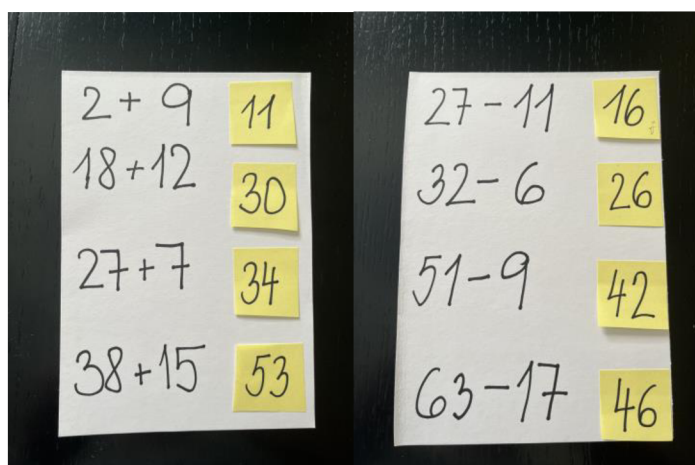 2 + 9 11
18+12 30
27+7 34
38+15 53
27-11 16
32-6 26
51-9 42
63-17 46